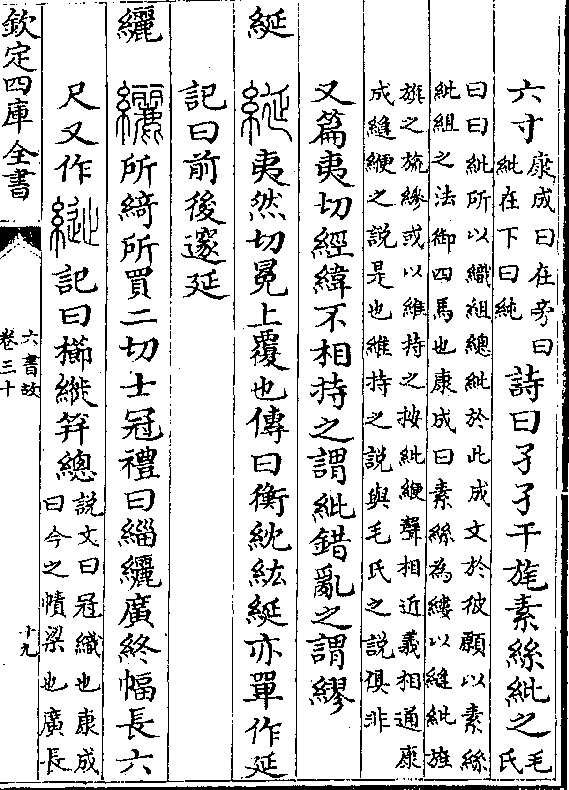 六寸康成曰在旁曰紕在下曰純詩曰孑孑干旄素絲紕之毛氏
曰曰紕所以織組總紕於此成文於彼願以素絲
紕組之法御四馬也康成曰素絲為縷以縫紕旌
旗之旒縿或以維持之按紕緶聲相近義相通康
成縫緶之説是也維持之説與毛氏之説俱非
又篇夷切經緯不相持之謂紕錯亂之謂繆
綖 綖夷然切冕上覆也傳曰衡紞紘綖亦單作延
記曰前後邃延
纚 纚所綺所買二切士冠禮曰緇纚廣終幅長六
尺又作縰記曰櫛縰笄總説文曰冠織也康成曰今之幘梁也廣長
欽定四庫全書
六書故
卷三十
十九